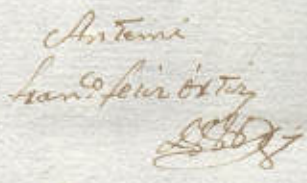 Ante mi
franco felix órtiz